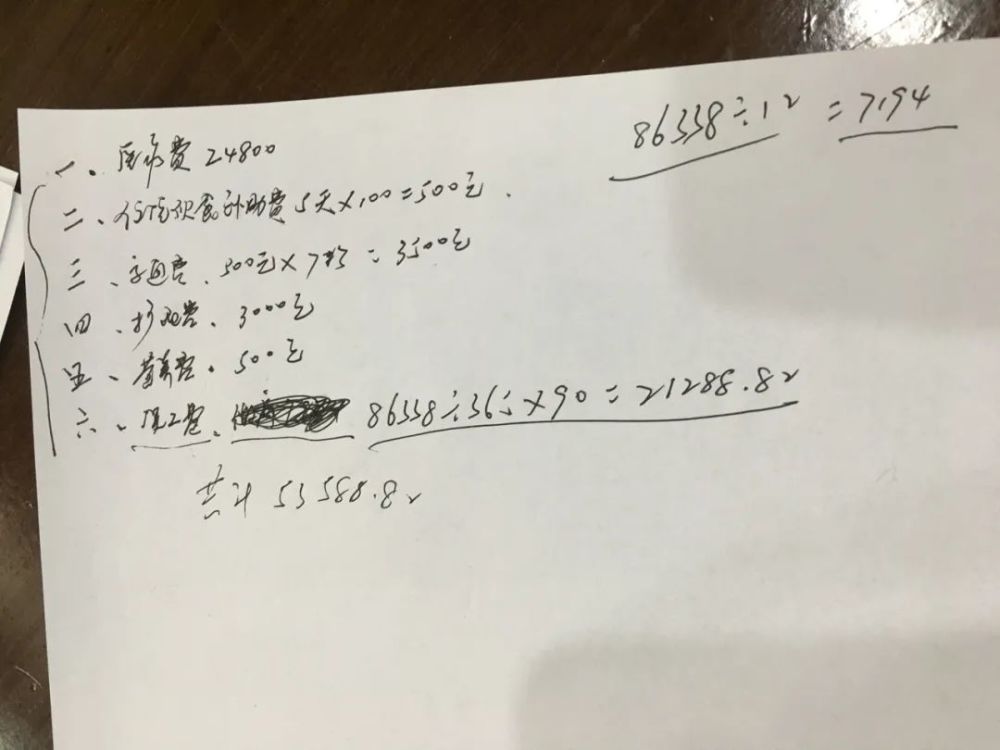 86338÷12=7194
一、医疗费 24800
二、住院伙食补助费 5天×100=500元.
三、交通费、500元×7 = 3500元
四、护理费、3000元
五、营养费. 500元
六、误工费、86338÷365×90=21288.82
共计 53588.82